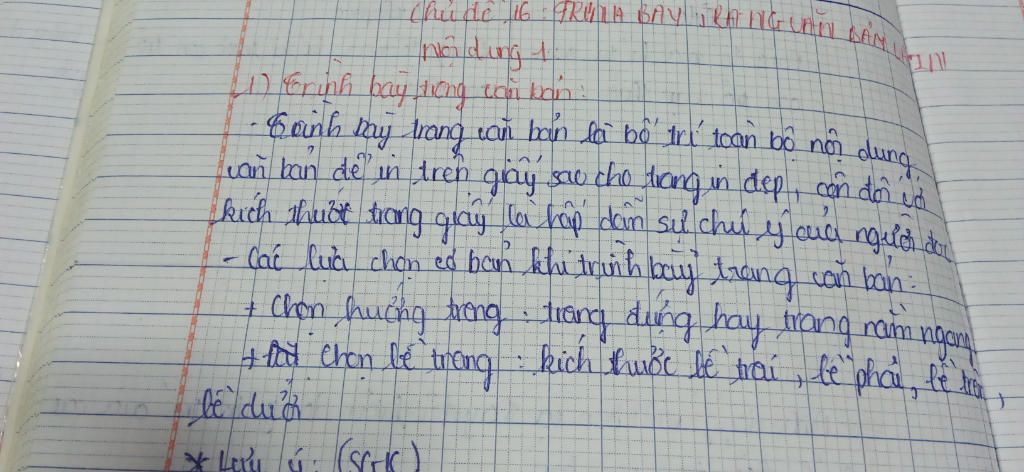 Chủ đề 16: TRÌNH BÀY TRANG VĂN BẢN VÀ IN
nội dung 1
1) trình bày trang văn bản:
- trình bày trang văn bản là bố trí toàn bộ nội dung
văn bản để in trên giấy sao cho trang in đẹp, cân đối và
kích thước trang giấy là hấp dẫn sự chú ý của người đọc
- Các lựa chọn cơ bản khi trình bày trang văn bản:
+ Chọn hướng trang: trang đứng hay trang nằm ngang
+ chọn lề trang: kích thước lề trái, lề phải, lề trên,
lề dưới
* Lưu ý: (SGK)